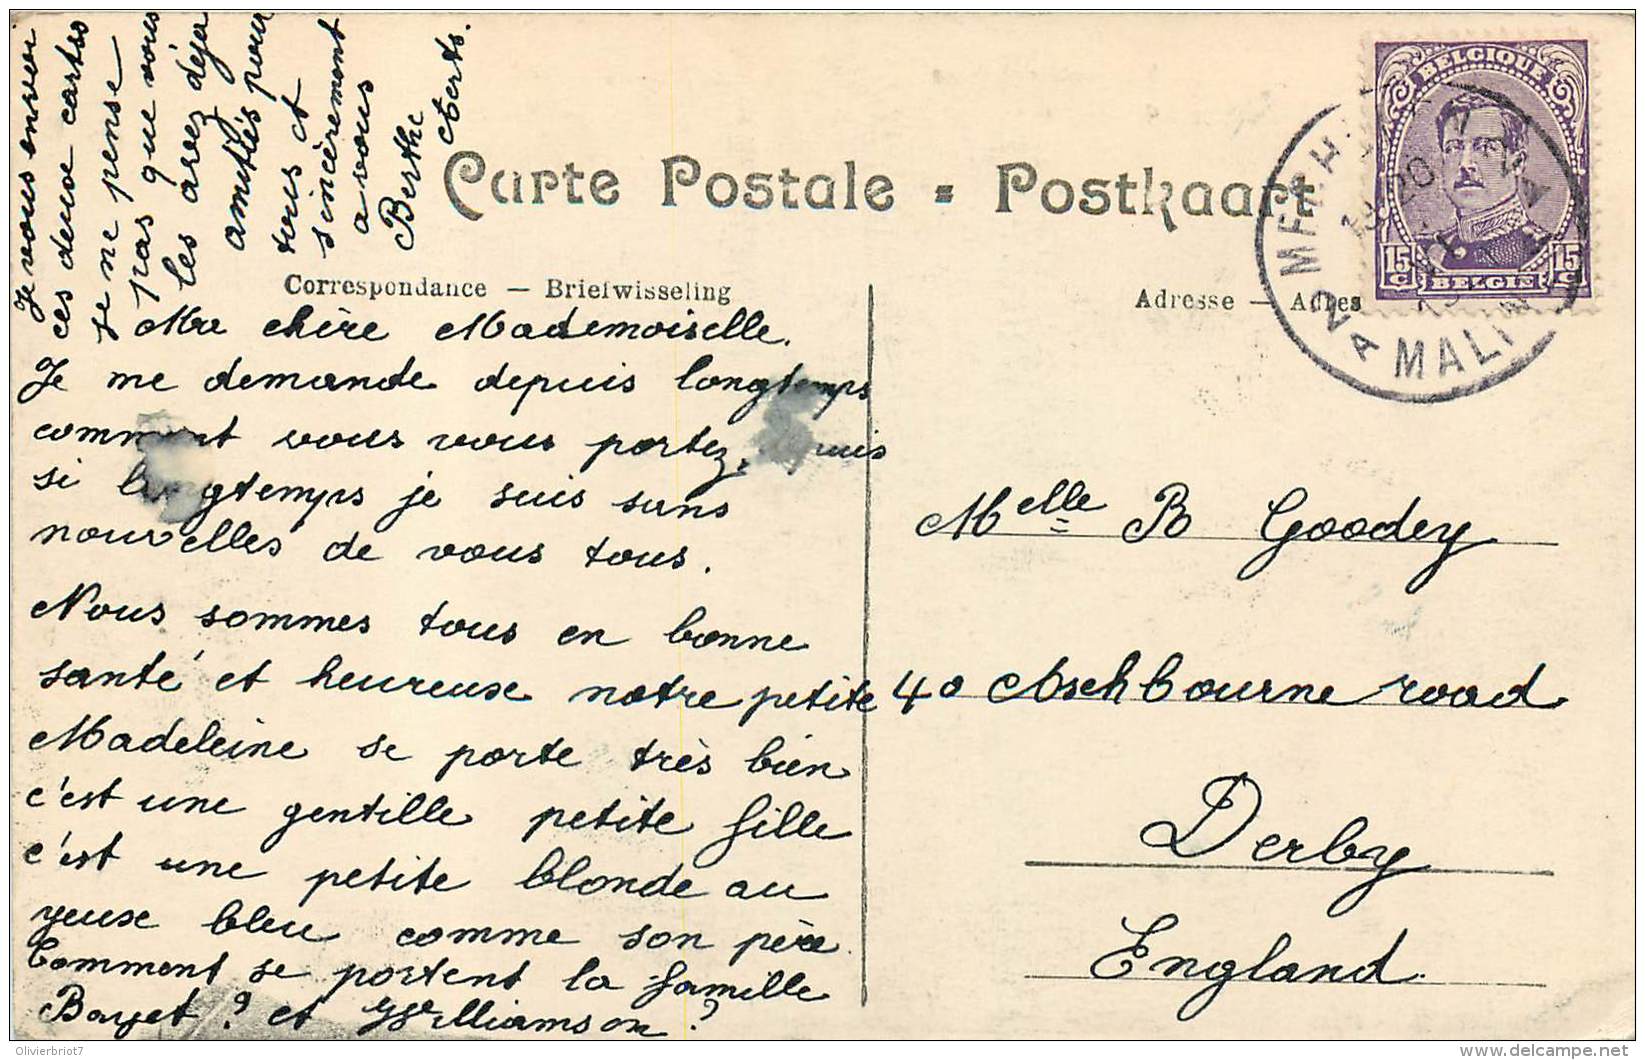 Carte Postale = Postkaart
Correspondance — Briefwisseling
Adresse — Adres
BELGIQUE
15 C
15 C
BELGIË
MECH
MALIN
2A
A
20
Ma chère Mademoiselle.
Je me demande depuis longtemps
comment vous vous portez, puis
si longtemps je suis sans
nouvelles de vous tous.
Nous sommes tous en bonne
santé et heureuse notre petite
Madeleine se porte très bien
c'est une gentille petite fille
c'est une petite blonde au
yeuse bleu comme son père.
Comment se portent la famille
Bayet? et Williamson?
Je vous envoi
ces deuxe cartes
je ne pense
pas que vous
les avez déja
amitiés pour
tous et
sincèrement
a vous
Berthe
Aerts.
Melle B Goodey
40 Aschbourne road
Derby
England.
Olivierbriot7
delcampe.net